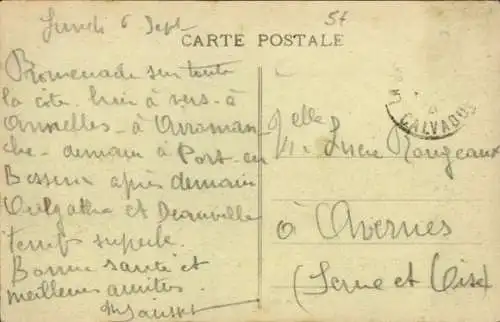 Lundi 6 Sept
5f
CARTE POSTALE
Promenade sur toute
la côte. hier à vers - à
Asnelles - à Arroman
che - demain à Port-en
Bessin après demain
Ouilgathe et Deauville
temps superbe.
Bonne santé et
meilleures amitiés.
Melle Lucie Rougeaux
à Avernes
(Seine et Oise)
CALVADOS